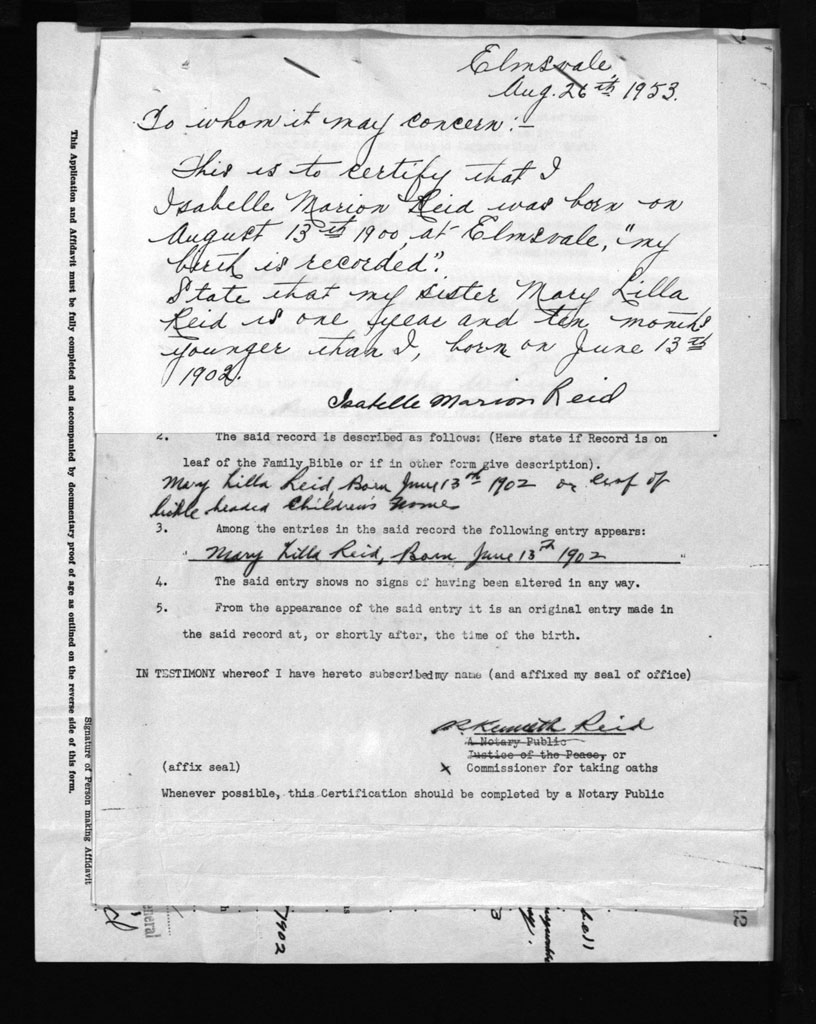 Elmsvale,
Aug. 26th 1953.
To whom it may concern:-
This is to certify that I
Isabelle Marion Reid was born on
August 13th 1900, at Elmsvale, "my
birth is recorded".
State that my sister Mary Lilla
Reid is one year and ten months
younger than I, born on June 13th
1902.
Isabelle Marion Reid
2. The said record is described as follows: (Here state if Record is on
leaf of the Family Bible or if in other form give description).
Mary Lilla Reid, Born June 13th 1902 on leaf of
bible headed Children's Names
3. Among the entries in the said record the following entry appears:
" Mary Lilla Reid, Born June 13th 1902 "
4. The said entry shows no signs of having been altered in any way.
5. From the appearance of the said entry it is an original entry made in
the said record at, or shortly after, the time of the birth.
IN TESTIMONY whereof I have hereto subscribed my name (and affixed my seal of office)
Kenneth Reid
A Notary Public
Justice of the Peace, or
(affix seal) x Commissioner for taking oaths
Whenever possible, this Certification should be completed by a Notary Public
This Application and Affidavit must be fully completed and accompanied by documentary proof of age as outlined on the reverse side of this form.
Signature of Person making Affidavit
eneral
1902
3
12